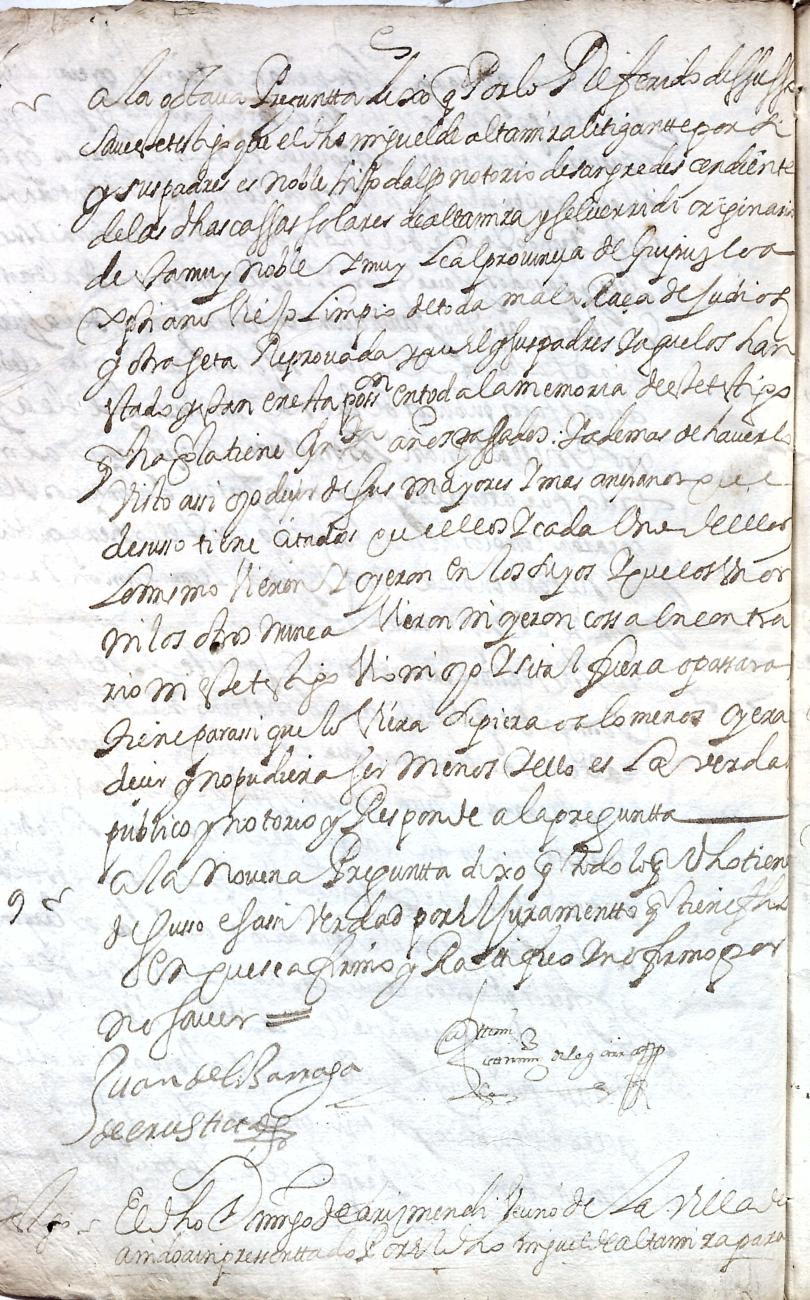 8
a la octava Preguntta dixo q Por lo Referido de susso
save este tgo que el dho miguel de altamira litigantte por si
y sus padres es Noble hijo dalgo notorio de sangre descendiente
de las dhas cassas solares de altamira y originario
de la muy Noble y muy Leal provincia de Guipuzcoa
Xptiano Viejo Limpio de toda mala Raça de Judios
y otra seta Reprovada y que el y sus padres y aguelos han
estado y estan en esta posson en toda la memoria deste testigo
que ha y la tiene años passados y ademas de haverlo
Visto assi oyo decir de sus mayores y mas ancianos que
de suso tiene citados que ellos y cada Uno dellos
Lo mismo Vieron y oyeron en los suyos y que los Unos
ni los otros nunca Vieron ni oyeron cossa en contra
rio ni este testigo Vio ni oyo y si tal fuera o passara
tiene para si que lo Viera supiera o a lo menos oyera
decir y no pudiera ser menos y ello es La verdad
publico y notorio y Responde a la preguntta
9
a la Novena Preguntta dixo q todo lo q dho tiene
de Susso es assi Verdad por el Juramentto q tiene fho
en que se afirmo y Rattifico y no firmo por
no saver
Juan de Lizarraga
El dho Domingo de arizmendi Vecino de La Villa de
amasa presenttado Por el dho miguel de altamira para